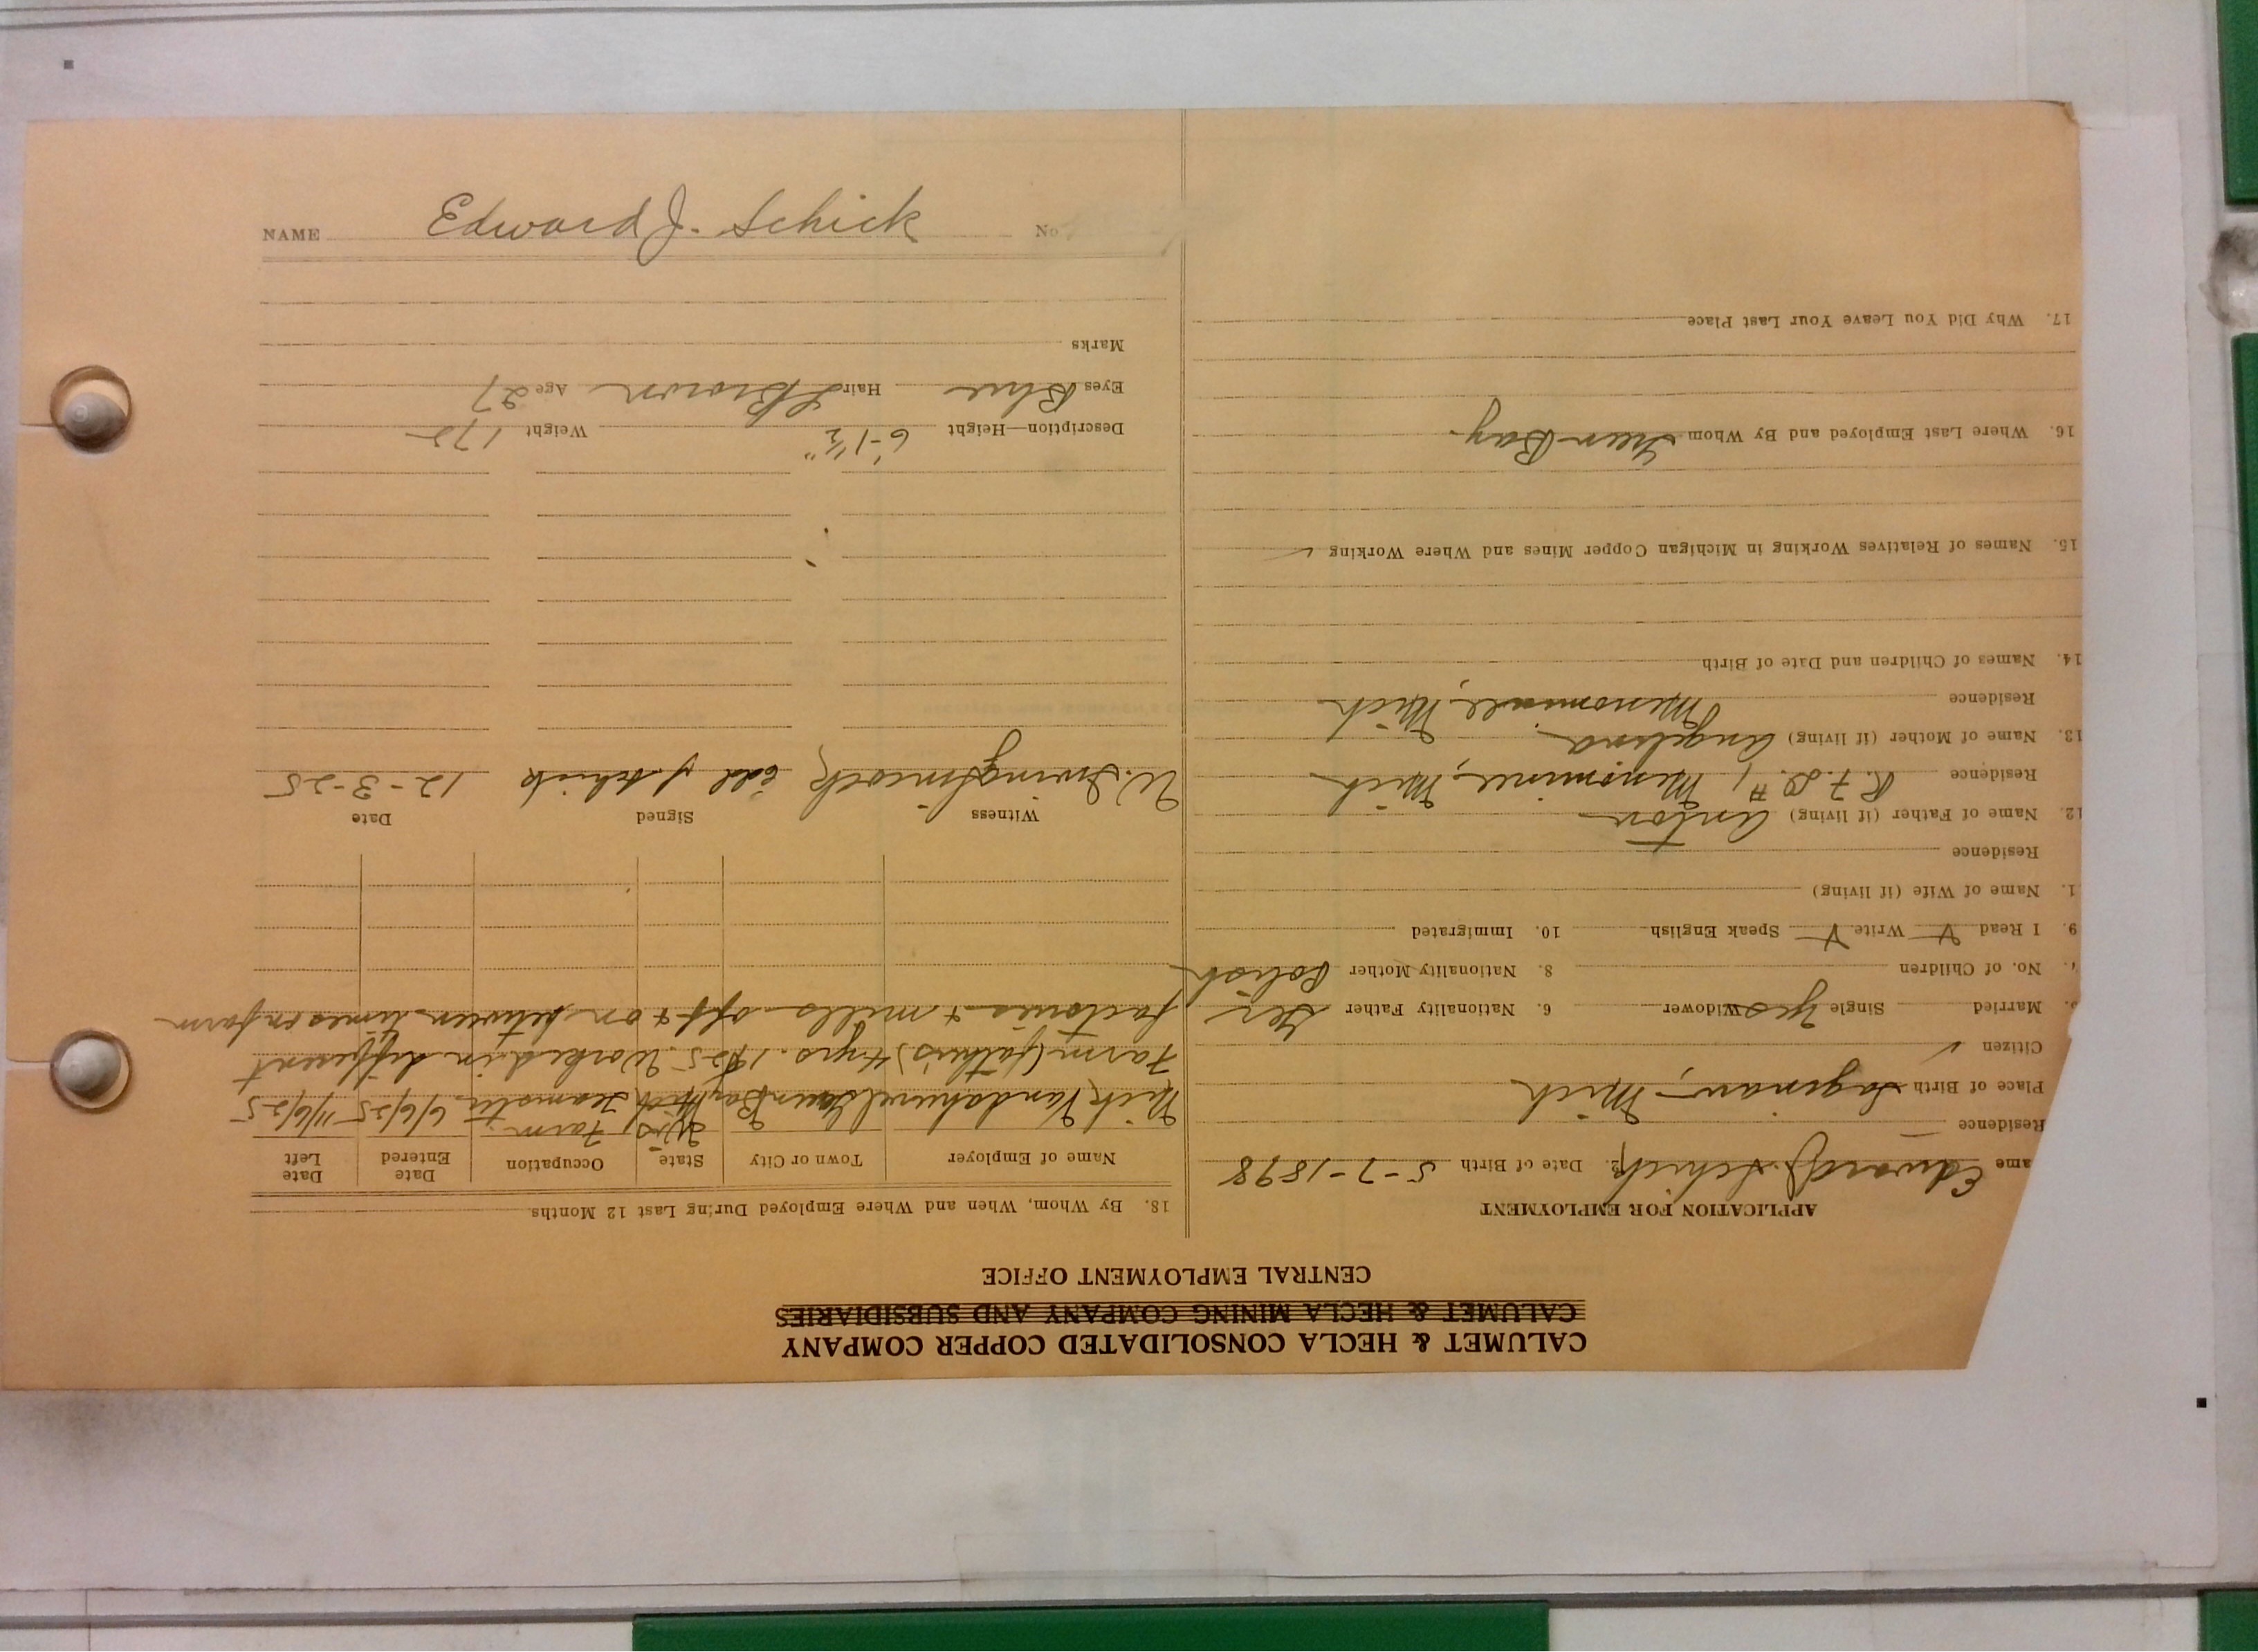 CALUMET & HECLA CONSOLIDATED COPPER COMPANY
CALUMET & HECLA MINING COMPANY AND SUBSIDIARIES
CENTRAL EMPLOYMENT OFFICE
APPLICATION FOR EMPLOYMENT
ame Edward J. Schick 2. Date of Birth 5-7-1898
Residence
Place of Birth Saginaw, Mich
Citizen ✓
Married Single Yes Widower 6. Nationality Father Ger
No. of Children 8. Nationality Mother Polish
9. I Read Y Write Y Speak English 10. Immigrated
1. Name of Wife (if living)
Residence
12. Name of Father (if living) Anton
Residence R.F.D. #1 Menominee, Mich
13. Name of Mother (if living) Angelina
Residence Menominee, Mich
14. Names of Children and Date of Birth
15. Names of Relatives Working in Michigan Copper Mines and Where Working ✓
16. Where Last Employed and By Whom Green Bay.
17. Why Did You Leave Your Last Place
18. By Whom, When and Where Employed During Last 12 Months
Name of Employer Town or City State Occupation Date Entered Date Left
Wis Farm
Nick Green Bay teamster 6/6/25 11/6/25
Farm (fathers) 4 yrs. 1925. Worked in different
factories + mills off + on between times on farm
Witness Signed Date
W. Edd J. Schick 12-3-25
Description—Height 6'-1½" Weight 175
Eyes Blue Hair L Brown Age 27
Marks
NAME Edward J. Schick No